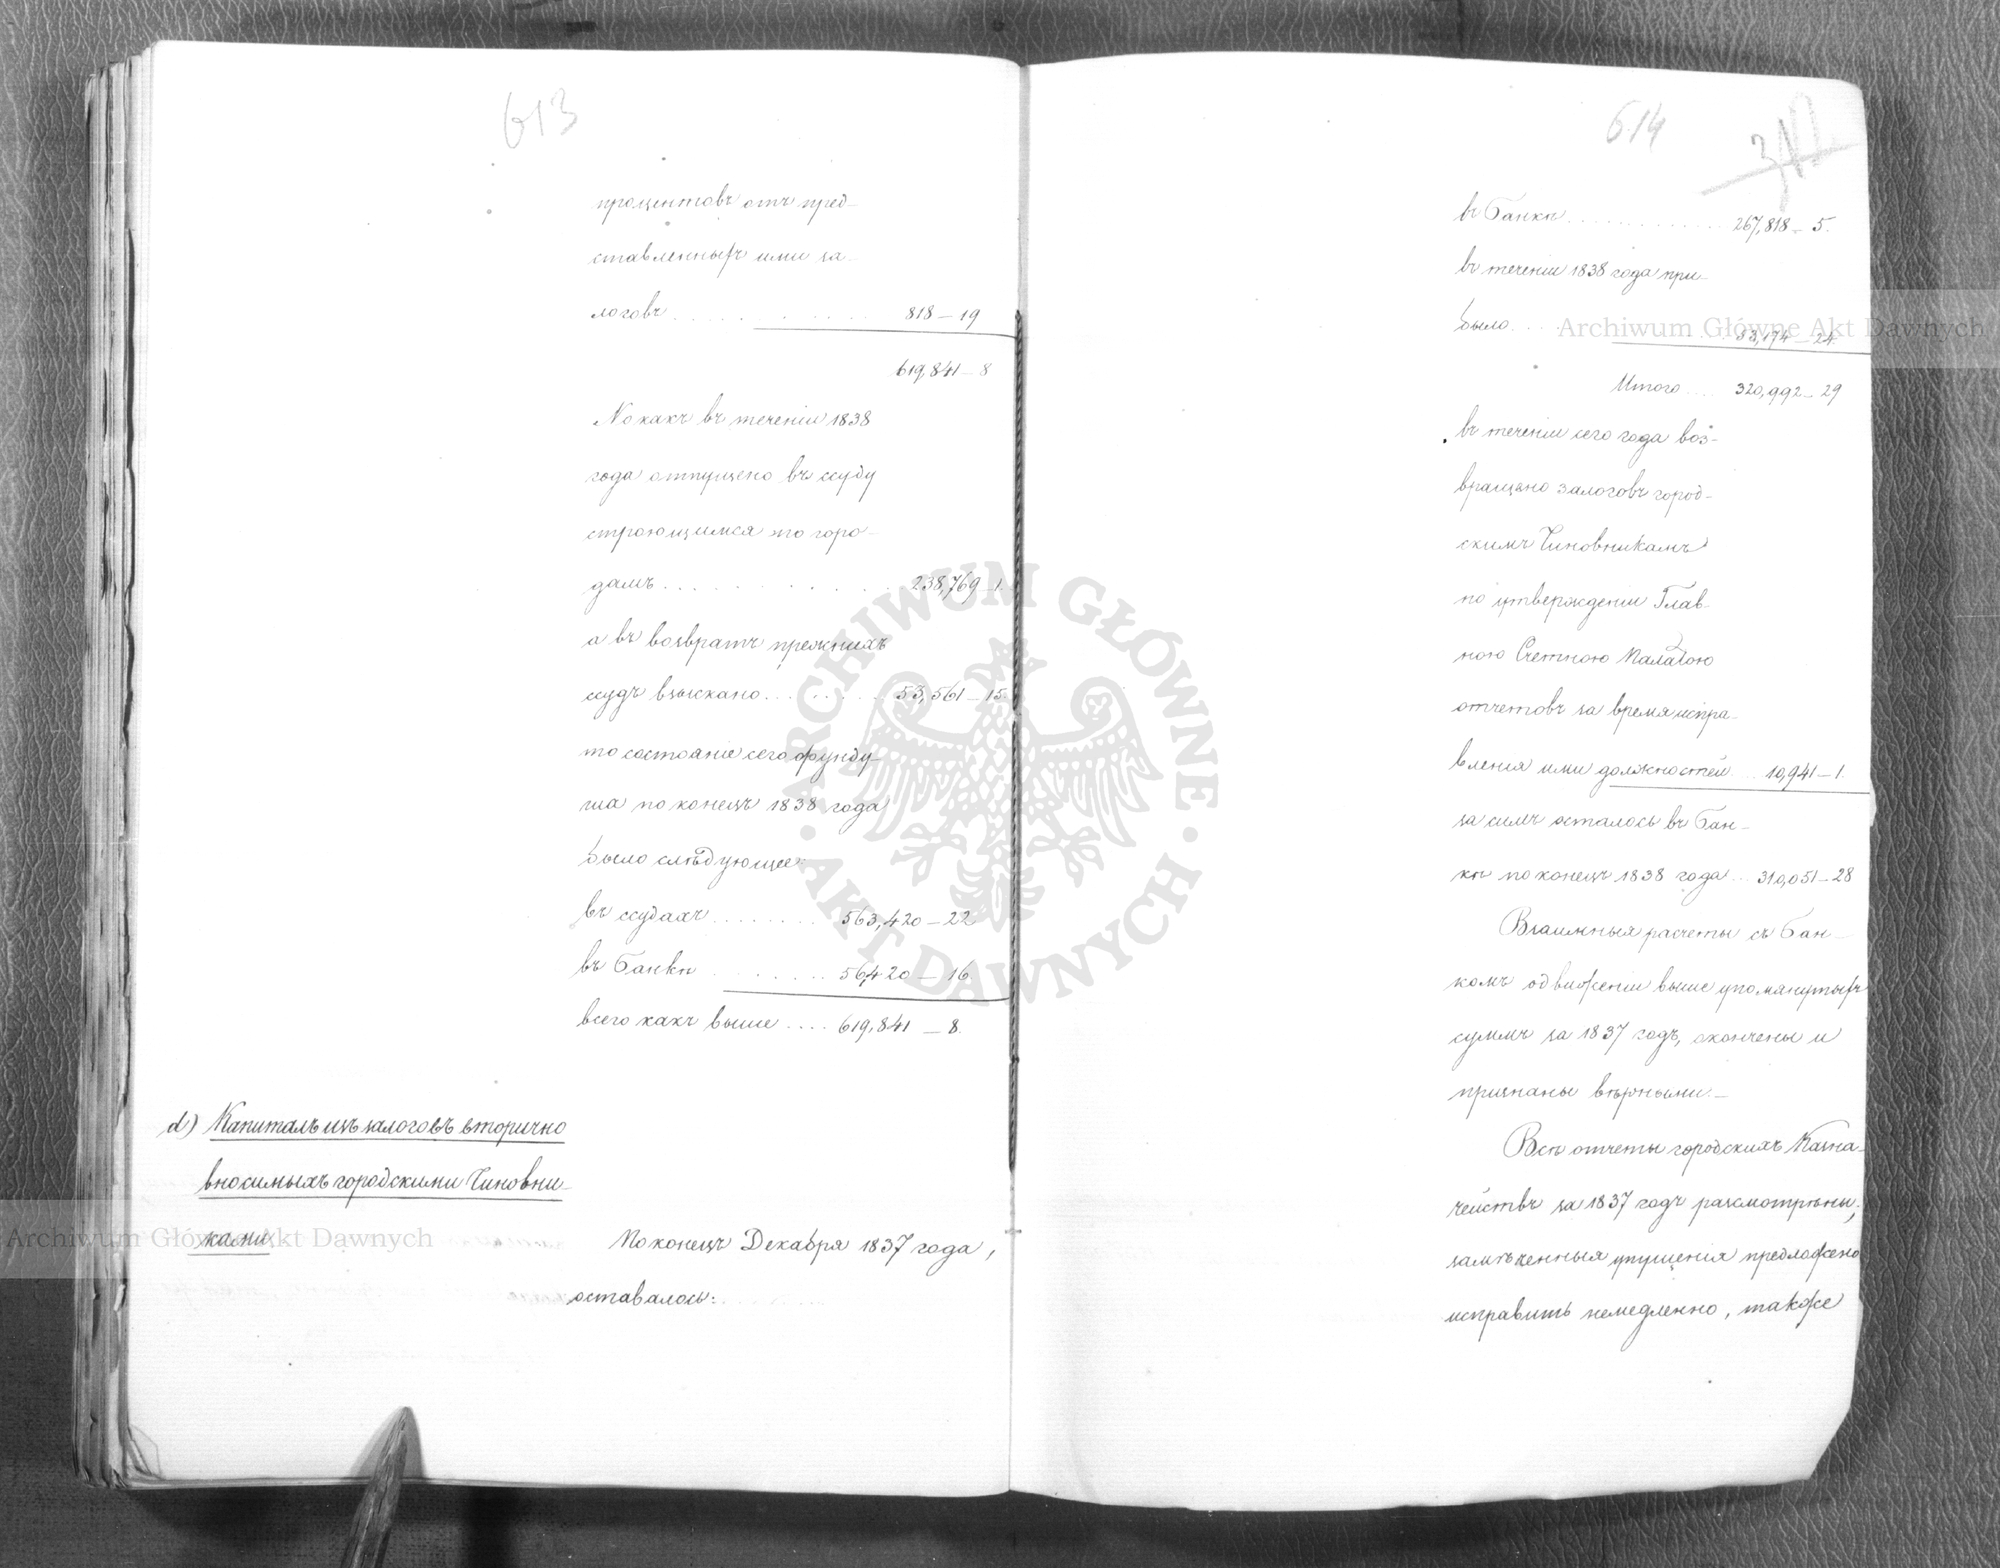 613
процентовъ отъ пред-
ставленныхъ ими за-
логовъ . . . . . . . . . . 818 – 19
619,841 – 8
Но какъ въ теченіи 1838
года отпущено въ ссуду
строющимся по горо-
дамъ . . . . . . . . . . 238,769 – 1.
а въ возвратъ прежнихъ
ссудъ взыскано . . . . . . . 53,561 – 15.
то состояніе сего фунду-
ша по конецъ 1838 года
было слѣдующее:
въ ссудахъ . . . . . . . 563,420 – 22
въ Банкѣ . . . . . . . 56,420 – 16.
всего какъ выше . . . . 619,841 – 8.
d) Капиталъ изъ залоговъ вторично
вносимыхъ городскими Чиновни-
ками
По конецъ Декабря 1837 года,
оставалось:
614
въ Банкѣ . . . . . . . . . . . . 267,818 – 5.
въ теченіи 1838 года при-
было . . . . 53,174 – 24.
Итого . . . . 320,992 – 29
въ теченіи сего года воз-
вращено залоговъ город-
скимъ Чиновникамъ
по утвержденіи Глав-
ною Счетною Палатою
отчетовъ за время испра-
вленія ими должностей . . 10,941 – 1.
за симъ осталось въ Бан-
кѣ по конецъ 1838 года . . 310,051 – 28
Взаимныя расчеты съ Бан-
комъ о движеніи выше упомянутыхъ
суммъ за 1837 годъ, окончены и
признаны вѣрными. –
Всѣ отчеты городскихъ Казна-
чействъ за 1837 годъ разсмотрѣны;
замѣченныя упущенія предложено
исправить немедленно, также
Archiwum Główne Akt Dawnych
Archiwum Główne Akt Dawnych
ARCHIWUM GŁÓWNE
AKT DAWNYCH